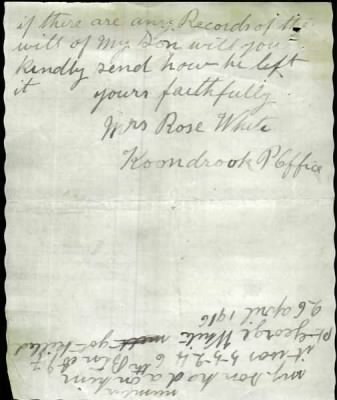 if there are any Records of the
will of My Son will you
kindly send how he left
it yours faithfully
Mrs Rose White
Koondrook P Office
number
my son had a on him
it was 5524 6th
Pt George White got killed
26 april 1916